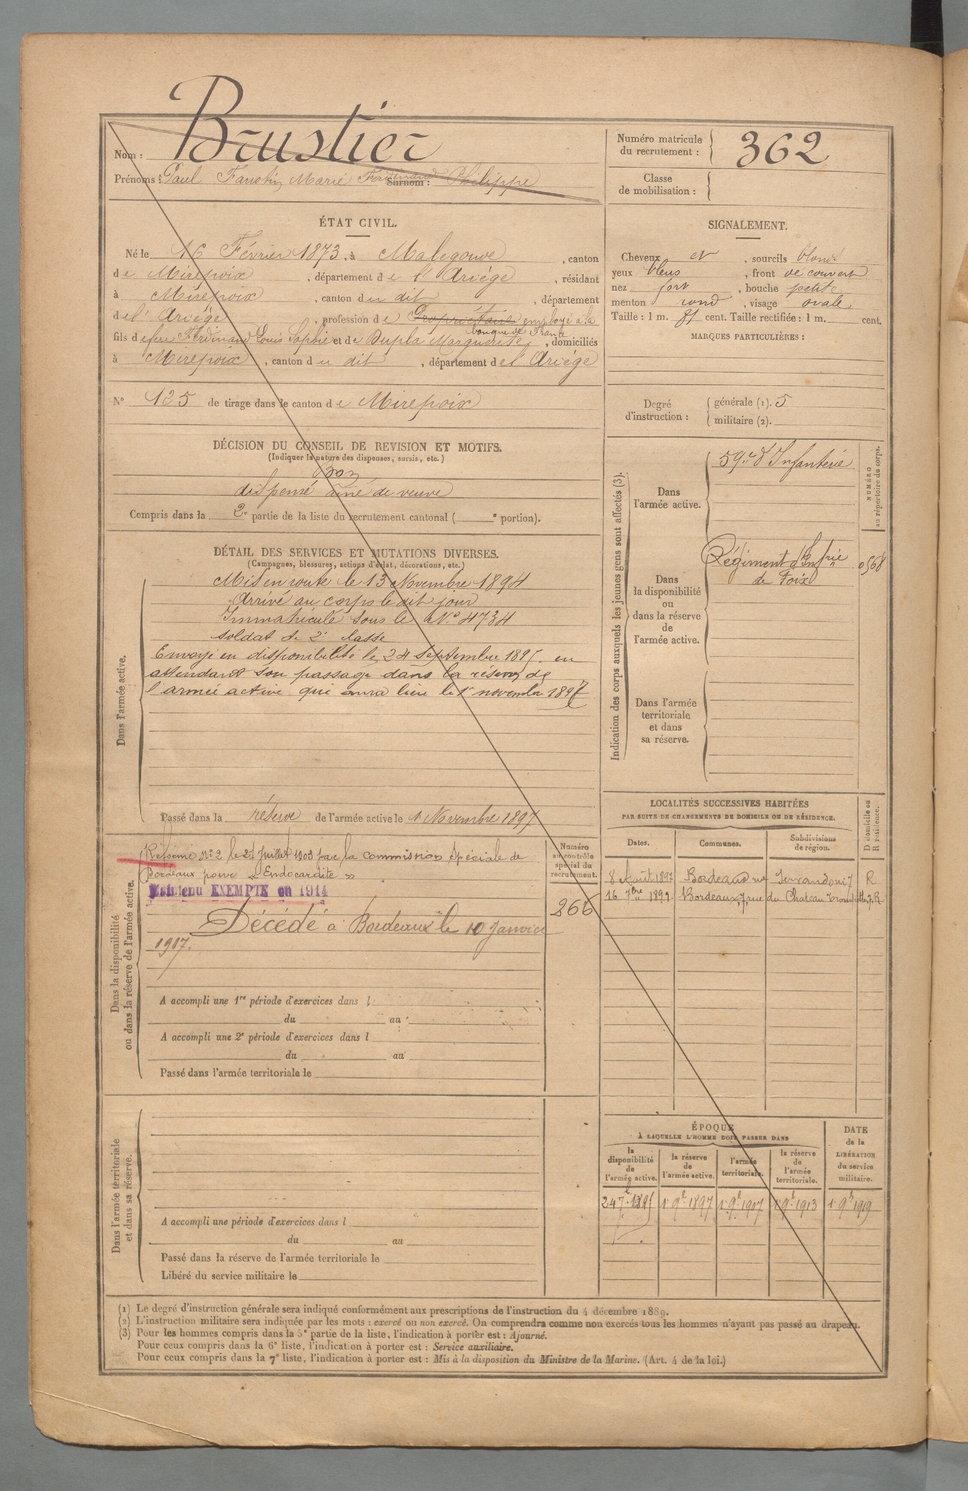 Brustier
Nom :
Prénoms : Paul Faustin Marie Ferdinand Surnom : Philippe
ÉTAT CIVIL.
Né le 16 Février 1873, à Malegoude, canton
de Mirepoix, département de l'Ariège, résidant
à Mirepoix, canton du dit, département
de l'Ariège, profession de Propriétaire employé à la
banque de France
fils de feu Ferdinand Louis Sophie et de Dupla Marguerite, domiciliés
à Mirepoix, canton du dit, département de l'Ariège
N° 135 de tirage dans le canton de Mirepoix
DÉCISION DU CONSEIL DE REVISION ET MOTIFS.
(Indiquer la nature des dispenses, sursis, etc.)
Bon
dispensé aîné de veuve
Compris dans la 2e partie de la liste du recrutement cantonal ( e portion).
DÉTAIL DES SERVICES ET MUTATIONS DIVERSES.
(Campagnes, blessures, actions d'éclat, décorations, etc.)
Dans l'armée active.
Mis en route le 13 Novembre 1894
Arrivé au corps le dit jour
Immatriculé sous le N° 4734
soldat de 2e classe
Envoyé en disponibilité le 24 Septembre 1895 en
attendant son passage dans la réserve de
l'armée active qui aura lieu le 1er novembre 1897
Passé dans la réserve de l'armée active le 1 Novembre 1897
Dans la disponibilité
ou dans la réserve de l'armée active.
Réformé N° 2 le 25 Juillet 1903 par la commission spéciale de
Bordeaux pour « Endocardite »
Maintenu EXEMPTÉ en 1914
Décédé à Bordeaux le 10 janvier
1917.
A accompli une 1re période d'exercices dans l
du au
A accompli une 2e période d'exercices dans l
du au
Passé dans l'armée territoriale le
Numéro
au contrôle
spécial du
recrutement.
266
Dans l'armée territoriale
et dans sa réserve.
A accompli une période d'exercices dans l
du au
Passé dans la réserve de l'armée territoriale le
Libéré du service militaire le
Numéro matricule
du recrutement : 362
Classe
de mobilisation :
SIGNALEMENT.
Cheveux et, sourcils blonds
yeux bleus, front découvert
nez fort, bouche petite
menton rond, visage ovale
Taille : 1 m. cent. Taille rectifiée : 1 m. cent.
MARQUES PARTICULIÈRES :
Degré
d'instruction :
générale (1). 5
militaire (2).
Indication des corps auxquels les jeunes gens sont affectés (3).
NUMÉRO
au répertoire du corps.
Dans
l'armée active.
59e d'Infanterie
Dans
la disponibilité
ou
dans la réserve
de
l'armée active.
Régiment d'Infrie
de Foix
0568
Dans l'armée
territoriale
et dans
sa réserve.
LOCALITÉS SUCCESSIVES HABITÉES
PAR SUITE DE CHANGEMENTS DE DOMICILE OU DE RÉSIDENCE.
D domicile ou
R résidence.
Dates. Communes. Subdivisions
de région.
8 Août Bordeaux rue R
16 7bre 1899 Bordeaux, rue du Château Trompette, R
ÉPOQUE
À LAQUELLE L'HOMME DOIT PASSER DANS
la
disponibilité
de
l'armée active.
la réserve
de
l'armée active.
l'armée
territoriale.
la réserve
de
l'armée
territoriale.
DATE
de la
LIBÉRATION
du service
militaire.
24 7e 1895 1 9e 1897 1 9e 1907 1 9e 1913 1 9e 1919
(1) Le degré d'instruction générale sera indiqué conformément aux prescriptions de l'instruction du 4 décembre 1889.
(2) L'instruction militaire sera indiquée par les mots : exercé ou non exercé. On comprendra comme non exercés tous les hommes n'ayant pas passé au drapeau.
(3) Pour les hommes compris dans la 5e partie de la liste, l'indication à porter est : Ajourné.
Pour ceux compris dans la 6e liste, l'indication à porter est : Service auxiliaire.
Pour ceux compris dans la 7e liste, l'indication à porter est : Mis à la disposition du Ministre de la Marine. (Art. 4 de la loi.)